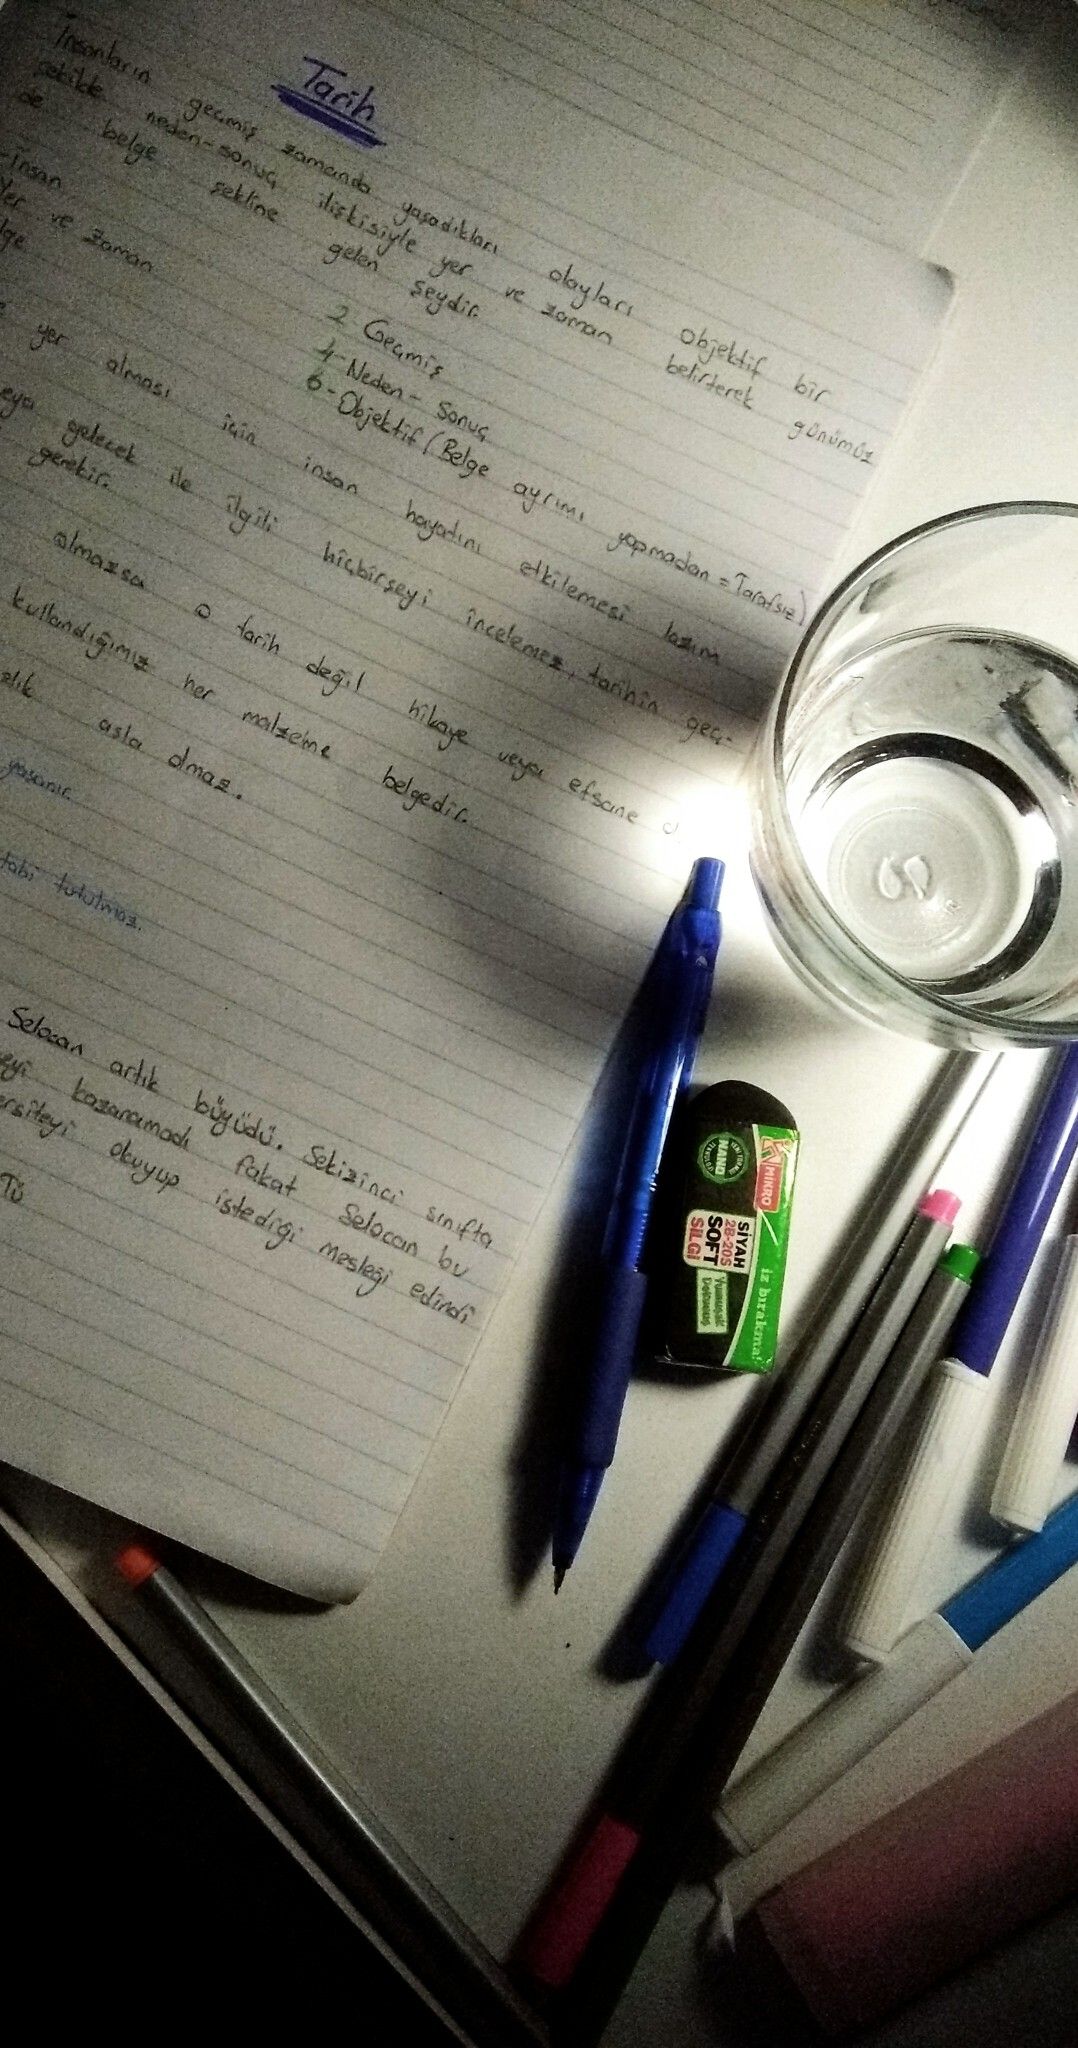 Tarih
İnsanların geçmiş zamanda yaşadıkları olayları objektif bir
şekilde neden-sonuç ilişkisiyle yer ve zaman belirterek günümüz
de belge şekline gelen şeydir.
-İnsan
2 Geçmiş
Yer ve zaman
4-Neden- Sonuç
6-Objektif (Belge ayrımı yapmadan = Tarafsız)
yer alması için insan hayatını etkilemesi lazım
gelecek ile ilgili hiçbirşeyi incelemez, tarihin geç-
gerekir.
olmazsa o tarih değil hikaye veya efsane
kullandığımız her malzeme belgedir.
asla olmaz.
yaşanır.
tabi tutulmaz.
Selocan artık büyüdü. Sekizinci sınıfta
kazanamadı fakat Selocan bu
okuyup istediği mesleği edindi
Tü
MİKRO
NANO
SİYAH
28-20S
SOFT
SİLGİ
iz bırakmaz